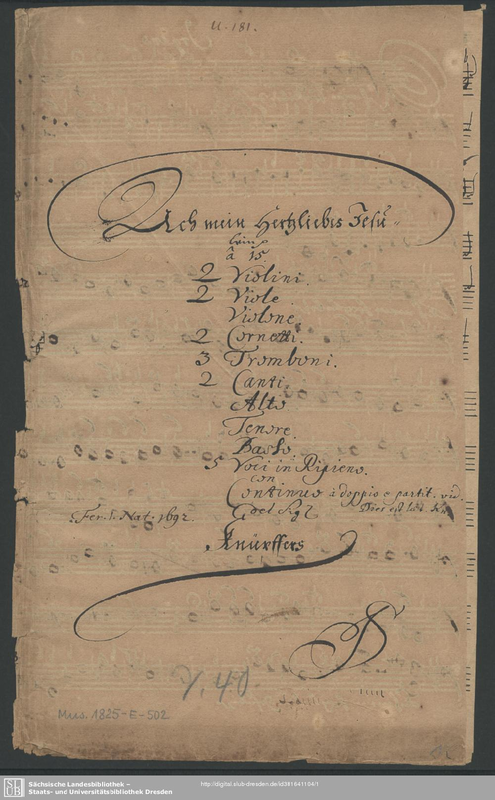 U. 181.
Ach mein Hertzliebes Jesu-
lein
â 15
2 Violini.
2 Viole.
Violone.
2 Cornetti.
3 Tromboni.
2 Canti.
Alto
Tenore.
Basso.
5 Voci in Ripieno.
con
Continuo à doppio e partit.
Fer. 1. Nat. 1692.
Knüpffers
V. 40
Mus. 1825-E-502
SLUB
Sächsische Landesbibliothek –
Staats- und Universitätsbibliothek Dresden
http://digital.slub-dresden.de/id381641104/1